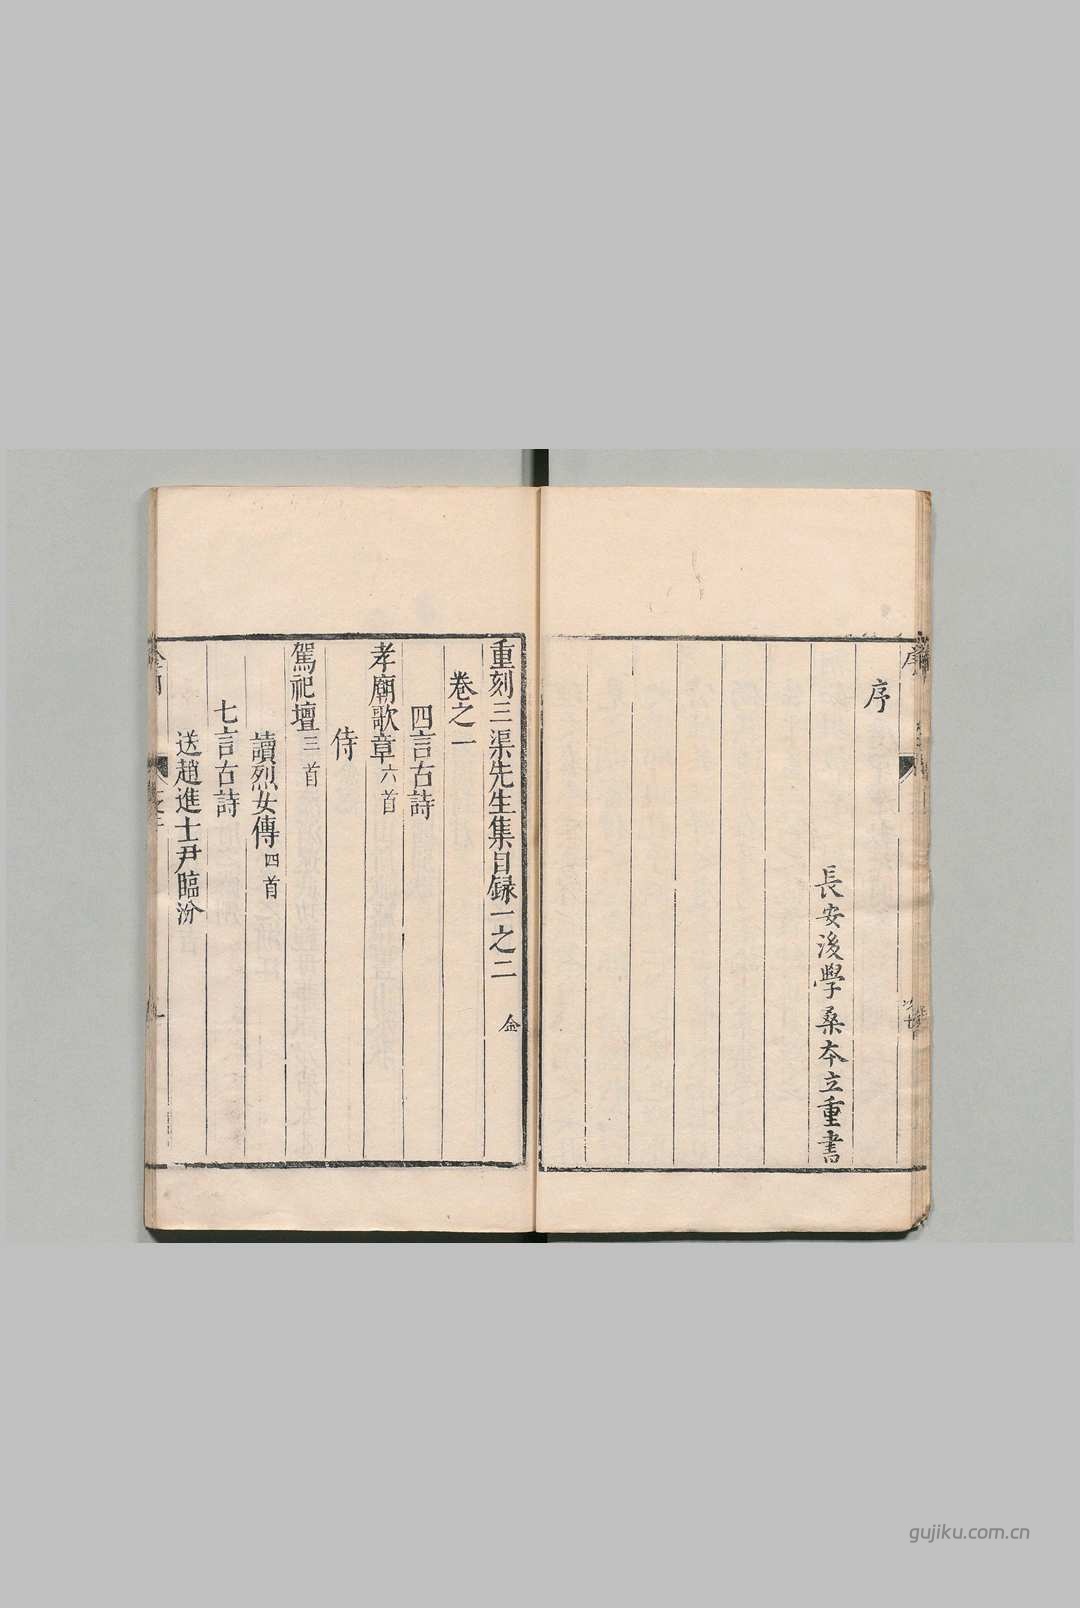 序
長安後學桑本立重書
重刻三渠先生集目録一之二 金
卷之一
四言古詩
孝廟歌章六首
侍
駕祀壇三首
讀烈女傳四首
七言古詩
送趙進士尹臨汾
gujiku.com.cn